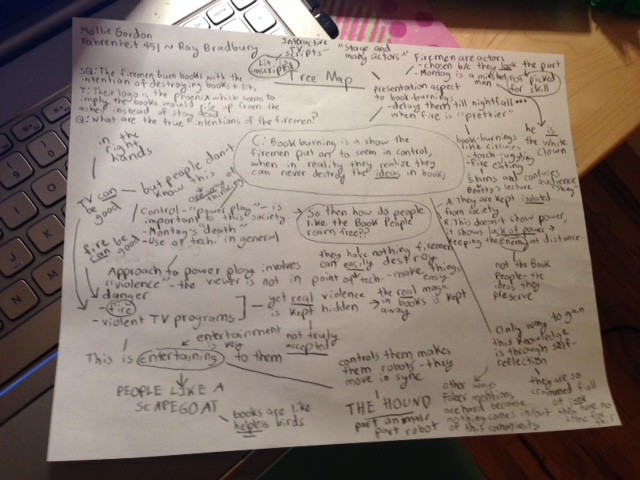 Mollie Gordon
Fahrenheit 451 ~ Ray Bradbury
Interactive
TV scripts-
Lit
manuscripts
"Stage and
many actors"
Tree Map
Firemen are actors
- chosen b/c they look the part
- Montag is a minstrel man
not picked
for skill
SQ: The firemen burn books with the
intention of destroying books + lit.
T: Their logo is the phoenix which seem to
imply the books would rise up from the
ashes instead of stay dead
Q: what are the true intentions of the firemen?
presentation aspect
to book-burning
- delay them till nightfall...
when fire is "prettier"
he is
the white
clown
C: Book burning is a show the
firemen put on to seem in control,
when in reality they realize they
can never destroy the ideas in books
book-burnings
like circuses
- torch-juggling
- fire eating
Stuns and confuses
audience
Beatty's lecture
in the
right
hands
TV can
be
good
but people don't
know this
way of
thinking
Control - "power play" - is
important to this society
- Montag's "death"
- Use of tech. in general
So then how do people
like the Book People
roam free??
A: They are kept isolated
from society
R: This doesn't show power,
it shows lack of power →
keeping the enemy at distance
fire can
be
good
they have nothing firemen
can easily destroy
Approach to power play involves
"violence" - the viewer is not in
danger
point of tech - make things
easy
- fire
- violent TV programs
get real violence
is kept hidden
the real magic
in books is kept
away
not the Book
People - the
ideas they
preserve
entertainment
is key
not truly
accepted
This is entertaining to them
Only way to gain
this knowledge
is through self-
reflection
controls them makes
them robots - they
move in sync
they are so
crammed full
PEOPLE LIKE A
SCAPEGOAT
books are like
helpless birds
THE HOUND
part animal/
part robot
other way
Faber mentions
are hard because
nothing comes in/out
of this community
they have no